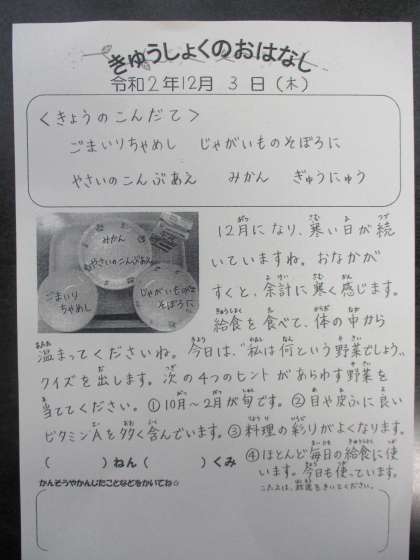 きゅうしょくのおはなし
令和2年12月 3 日（木）
＜きょうのこんだて＞
ごまいりちゃめし じゃがいものそぼろに
やさいのこんぶあえ みかん ぎゅうにゅう
みかん
やさいのこんぶあえ
ごまいり
ちゃめし
じゃがいもの
そぼろに
12月になり、寒い日が続
いていますね。おなかが
すくと、余計に寒く感じます。
給食を食べて、体の中から
温まってくださいね。今日は、"私は何という野菜でしょう"
クイズを出します。次の4つのヒントがあらわす野菜を
当ててください。①10月～2月が旬です。②目や皮ふに良い
ビタミンAを多く含んでいます。③料理の彩りがよくなります。
④ほとんど毎日の給食に使
います。今日も使っています。
（ ）ねん（ ）くみ
かんそうやかんじたことなどをかいてね☆